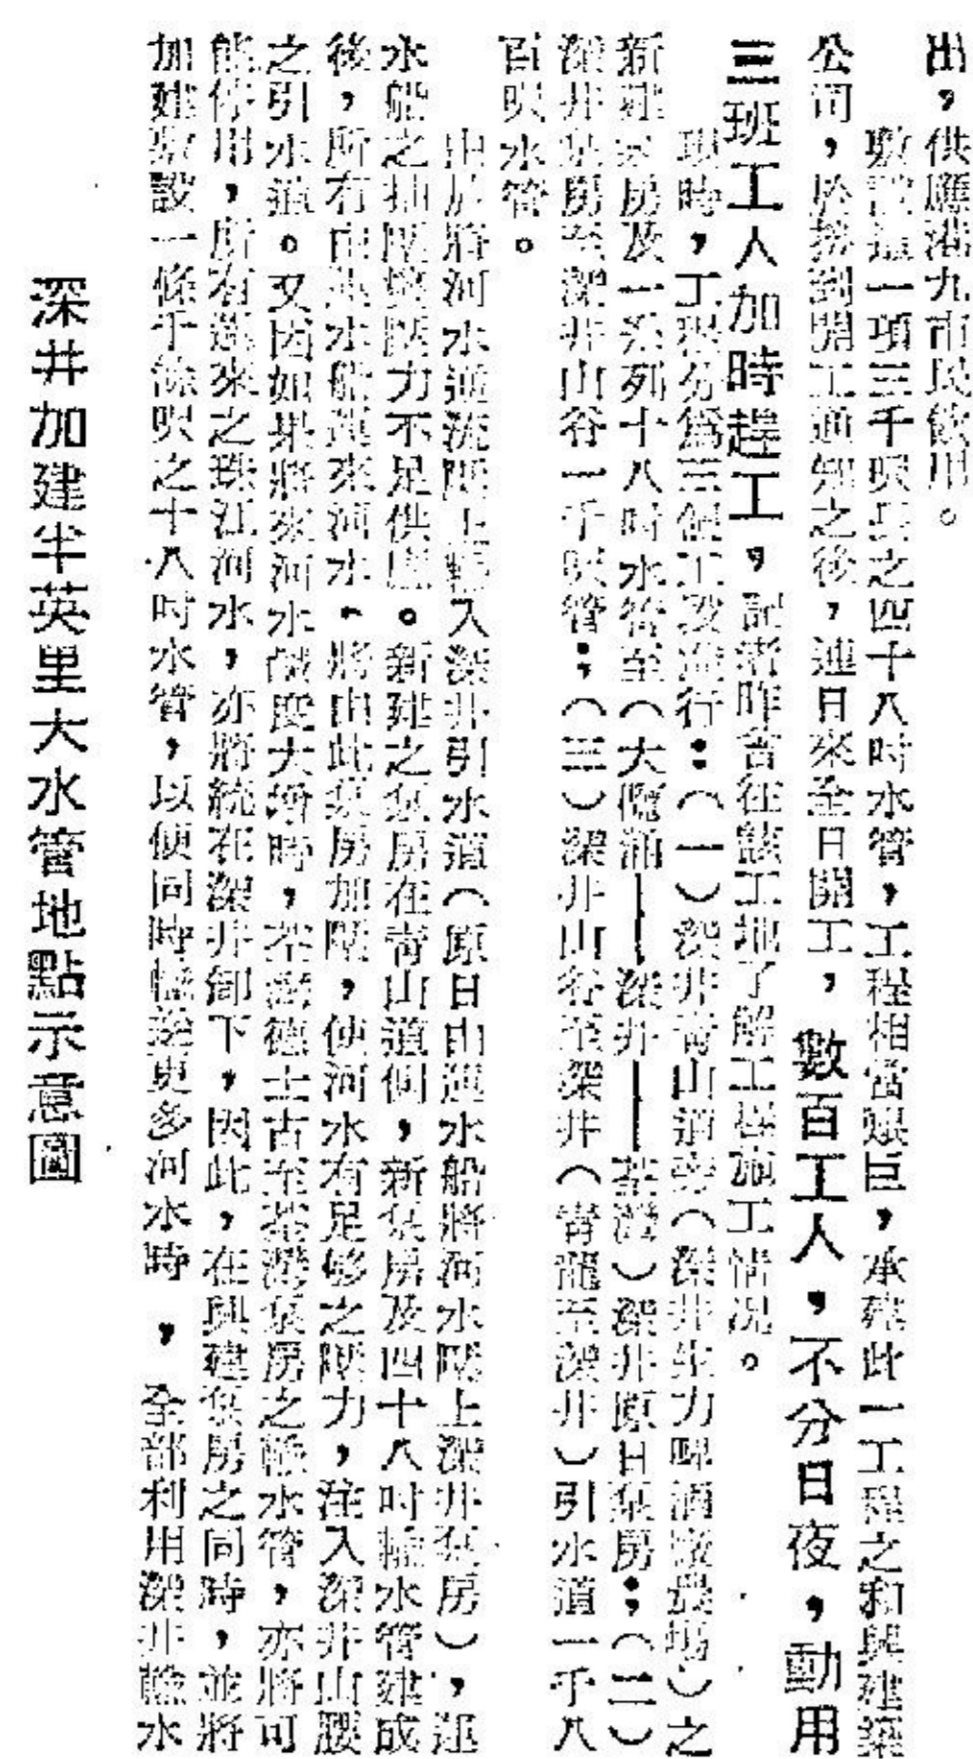 出，供應港九市民飲用。
敷設這一項三千呎長之四十八吋水管，工程相當艱巨，承建此一工程之和興建築
公司，於接到開工通知之後，連日來全日開工，數百工人，不分日夜，動用
三班工人加時趕工，記者昨曾往該工地了解工程施工情況。
現時，工程分為三個工段進行：（一）深井青山道旁（深井生力啤酒廠農場）之
新建泵房及一系列十八吋水管至（大欖涌——深井——荃灣）深井原日泵房；（二）
深井泵房至深井山谷一千呎管；（三）深井山谷至深井（青龍至深井）引水道一千八
百呎水管。
由於將河水逆流壓上輸入深井引水道（原日由運水船將河水壓上深井泵房），運
水船之抽壓機壓力不足供應。新建之泵房在青山道側，新泵房及四十八吋輸水管建成
後，所有由運水船運來河水，將由此泵房加壓，使河水有足够之壓力，注入深井山腰
之引水道。又因如果將來河水鹹度大增時，荃灣德士古至荃灣泵房之輸水管，亦將可
能停用，所有運來之珠江河水，亦將統在深井卸下，因此，在興建泵房之同時，並將
加建敷設一條千餘呎之十八吋水管，以便同時輸送更多河水時，全部利用深井輸水
深井加建半英里大水管地點示意圖